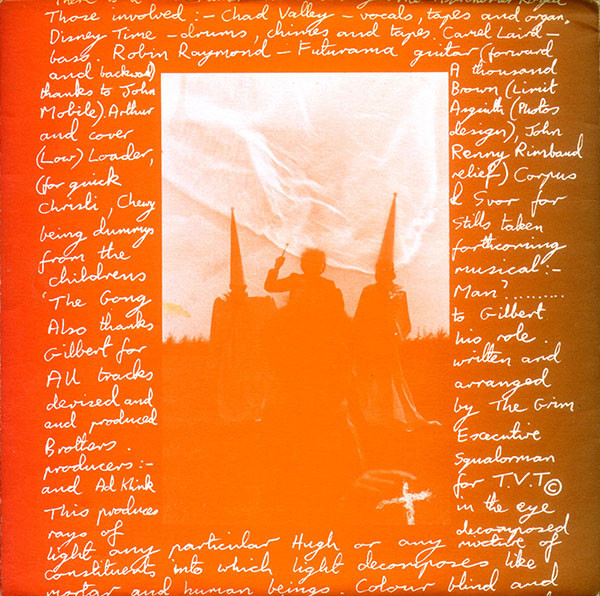 Those involved :- Chad Valley - vocals, tapes and organ.
Disney Time - drums, chimes and tapes. Carel Laird -
bass. Robin Raymond - Futurama guitar (forward
and backward) A thousand
thanks to John Brown (Limit
Mobile). Arthur Asginth (Photos
and cover design), John
(Low) Loader, Renny Rimbaud
(for quick relief) Corpus
Christi, Chewy & Svor for
being dummys Stills taken
from the forthcoming
childrens musical :-
'The Gong Man'..........
Also thanks to Gilbert
Gilbert for his role.
All tracks written and
devised and arranged
and produced by The Grim
Brottars. Executive
producers :- Squalorman
and Ad Klink for T.V.T ©
This produces in the eye
rays of decomposed
light any particular Hugh or any mixture of
constituents into which light decomposes like
mortar and human beings. Colour blind and